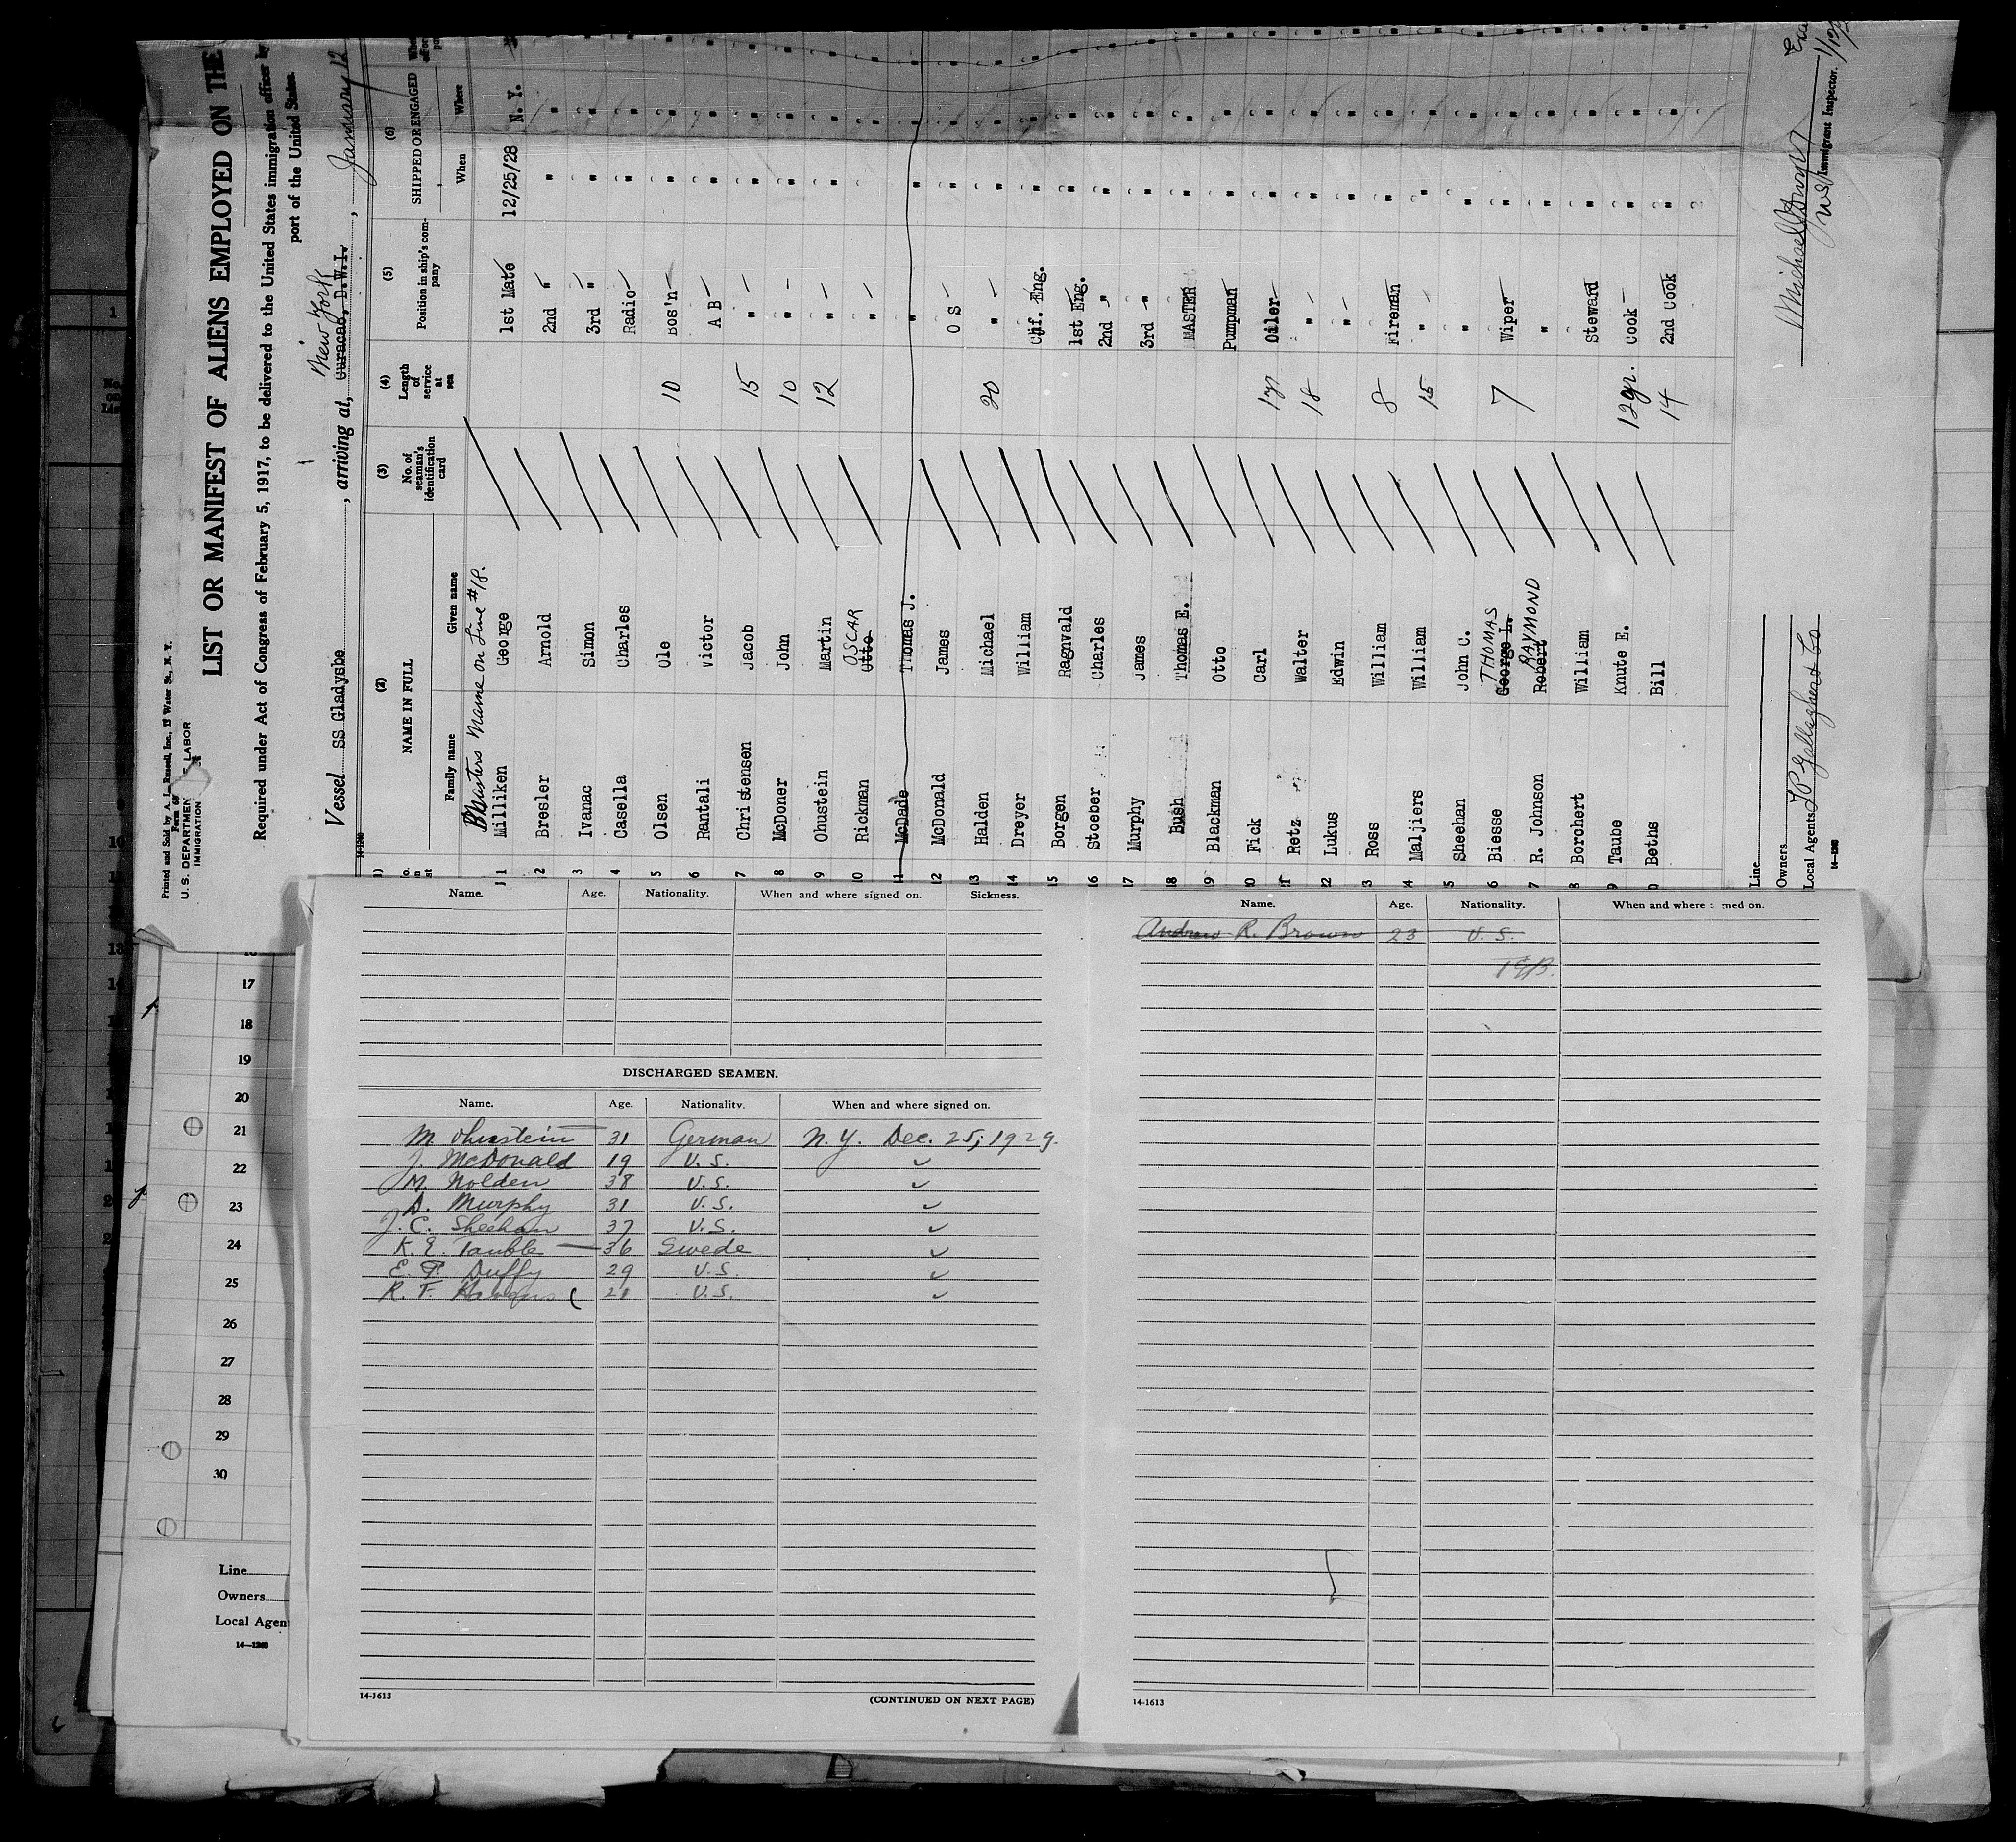 Printed and Sold by A. L. Russell, Inc., 17 Water St., N. Y.
U. S. DEPARTMENT LABOR
IMMIGRATION
LIST OR MANIFEST OF ALIENS EMPLOYED ON THE
Required under Act of Congress of February 5, 1917, to be delivered to the United States immigration officer by
port of the United States.
New York
Vessel SS Gladysbe, arriving at, Curacao, D.W.I., January 12
14-1240
(2) (3) (4) (5) (6)
NAME IN FULL No. of seaman's identification card Length of service at sea Position in ship's company SHIPPED OR ENGAGED
Family name Given name When Where
Masters Name on Line #18.
1 Milliken George 1st Mate 12/25/28 N. Y.
2 Bresler Arnold 2nd " " "
3 Ivanac Simon 3rd " " "
4 Casella Charles Radio " "
5 Olsen Ole 10 Bos'n " "
6 Rantali Victor A B " "
7 Christensen Jacob 15 " " "
8 McDoner John 10 " " "
9 Ohustein Martin 12 " " "
10 Rickman Otto OSCAR " " "
11 McDade Thomas J. " " "
12 McDonald James O S " "
13 Halden Michael 20 " " "
14 Dreyer William Chf. Eng. " "
15 Borgen Ragnvald 1st Eng. " "
16 Stoeber Charles 2nd " " "
17 Murphy James 3rd " " "
18 Bush Thomas E. MASTER " "
19 Blackman Otto Pumpman " "
0 Fick Carl Oiler " "
21 Retz Walter 18 " " "
22 Lukus Edwin " " "
3 Ross William 8 Fireman " "
4 Maljiers William 15 " " "
5 Sheehan John C. " " "
6 Biesse George L. THOMAS 7 Wiper " "
7 R. Johnson Robert RAYMOND " " "
8 Borchert William Steward " "
9 Taube Knute E. 12 yr. Cook " "
0 Beths Bill 14 2nd Cook " "
Line
Owners
Local Agents, Gallagher & Co
14-1240
Immigrant Inspector.
Name. Age. Nationality. When and where signed on. Sickness.
DISCHARGED SEAMEN.
Name. Age. Nationality. When and where signed on.
M. Ohustein 31 German N. Y. Dec. 25, 1929.
J. McDonald 19 U.S. ✓
M. Holden 38 U.S. ✓
D. Murphy 31 U.S. ✓
J. C. Sheehan 37 U.S. ✓
K. E. Tauble 36 Swede ✓
E. F. Duffy 29 U.S. ✓
R. F. 21 U.S. ✓
14-1613
(CONTINUED ON NEXT PAGE)
Name. Age. Nationality. When and where signed on.
Andrew R. Brown 23 U. S.
14-1613
17
18
19
20
21
22
23
24
25
26
27
28
29
30
Line
Owners
Local Agen
14-1240